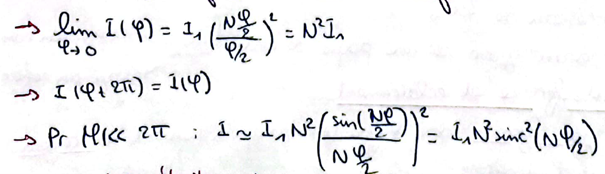 → lim I(φ) = I₁ (Nφ/2 / φ/2)² = N²I₁
φ→0
→ I(φ+2π) = I(φ)
→ Pr |φ|<< 2π : I ≃ I₁N² (sin(Nφ/2) / Nφ/2)² = I₁N² sinc²(Nφ/2)